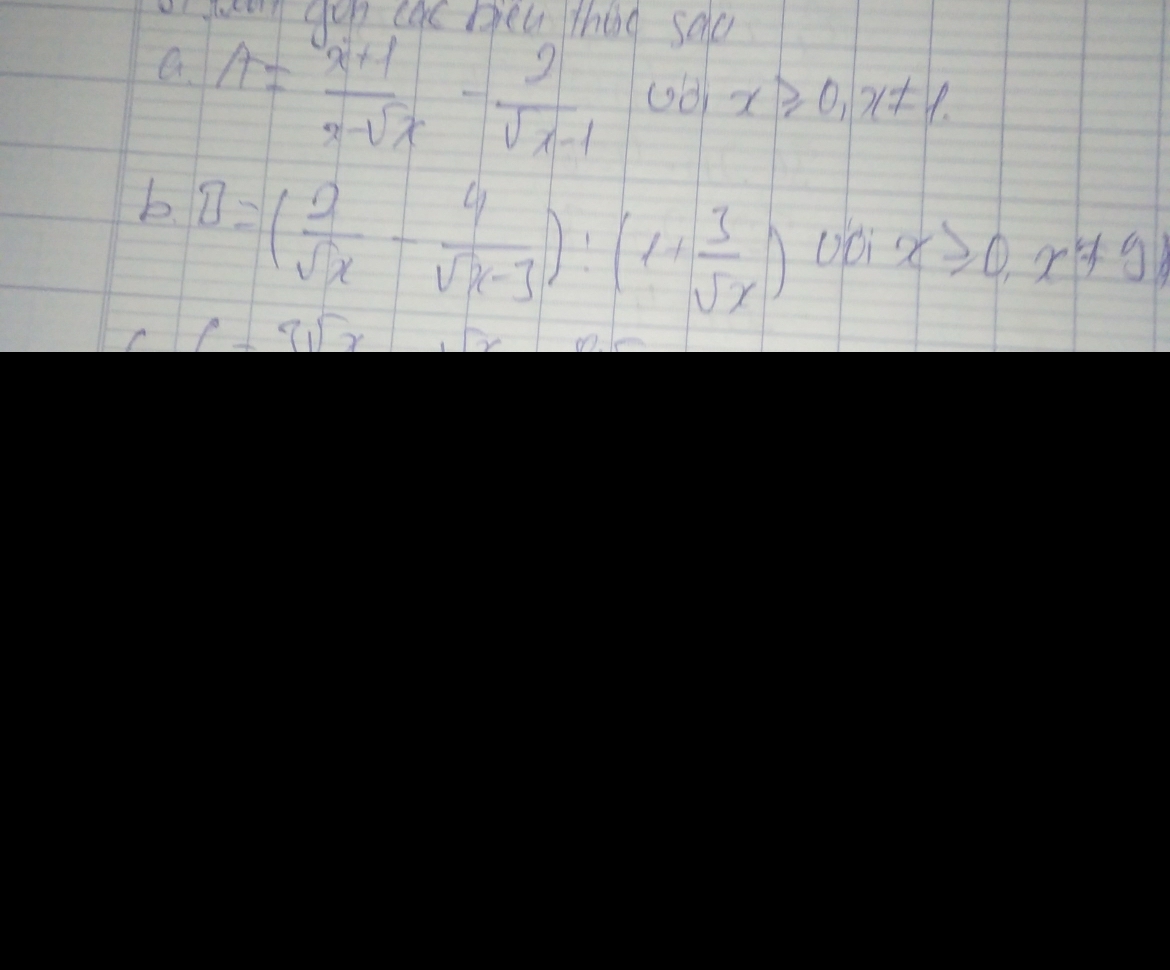 gọn các biểu thức sau
a. A = \frac{x+1}{x-\sqrt{x}} - \frac{2}{\sqrt{x}-1} với x ≥ 0, x ≠ 1.
b. B = (\frac{2}{\sqrt{x}} - \frac{4}{\sqrt{x}-3}) : (1 + \frac{3}{\sqrt{x}}) với x ≥ 0, x ≠ 9